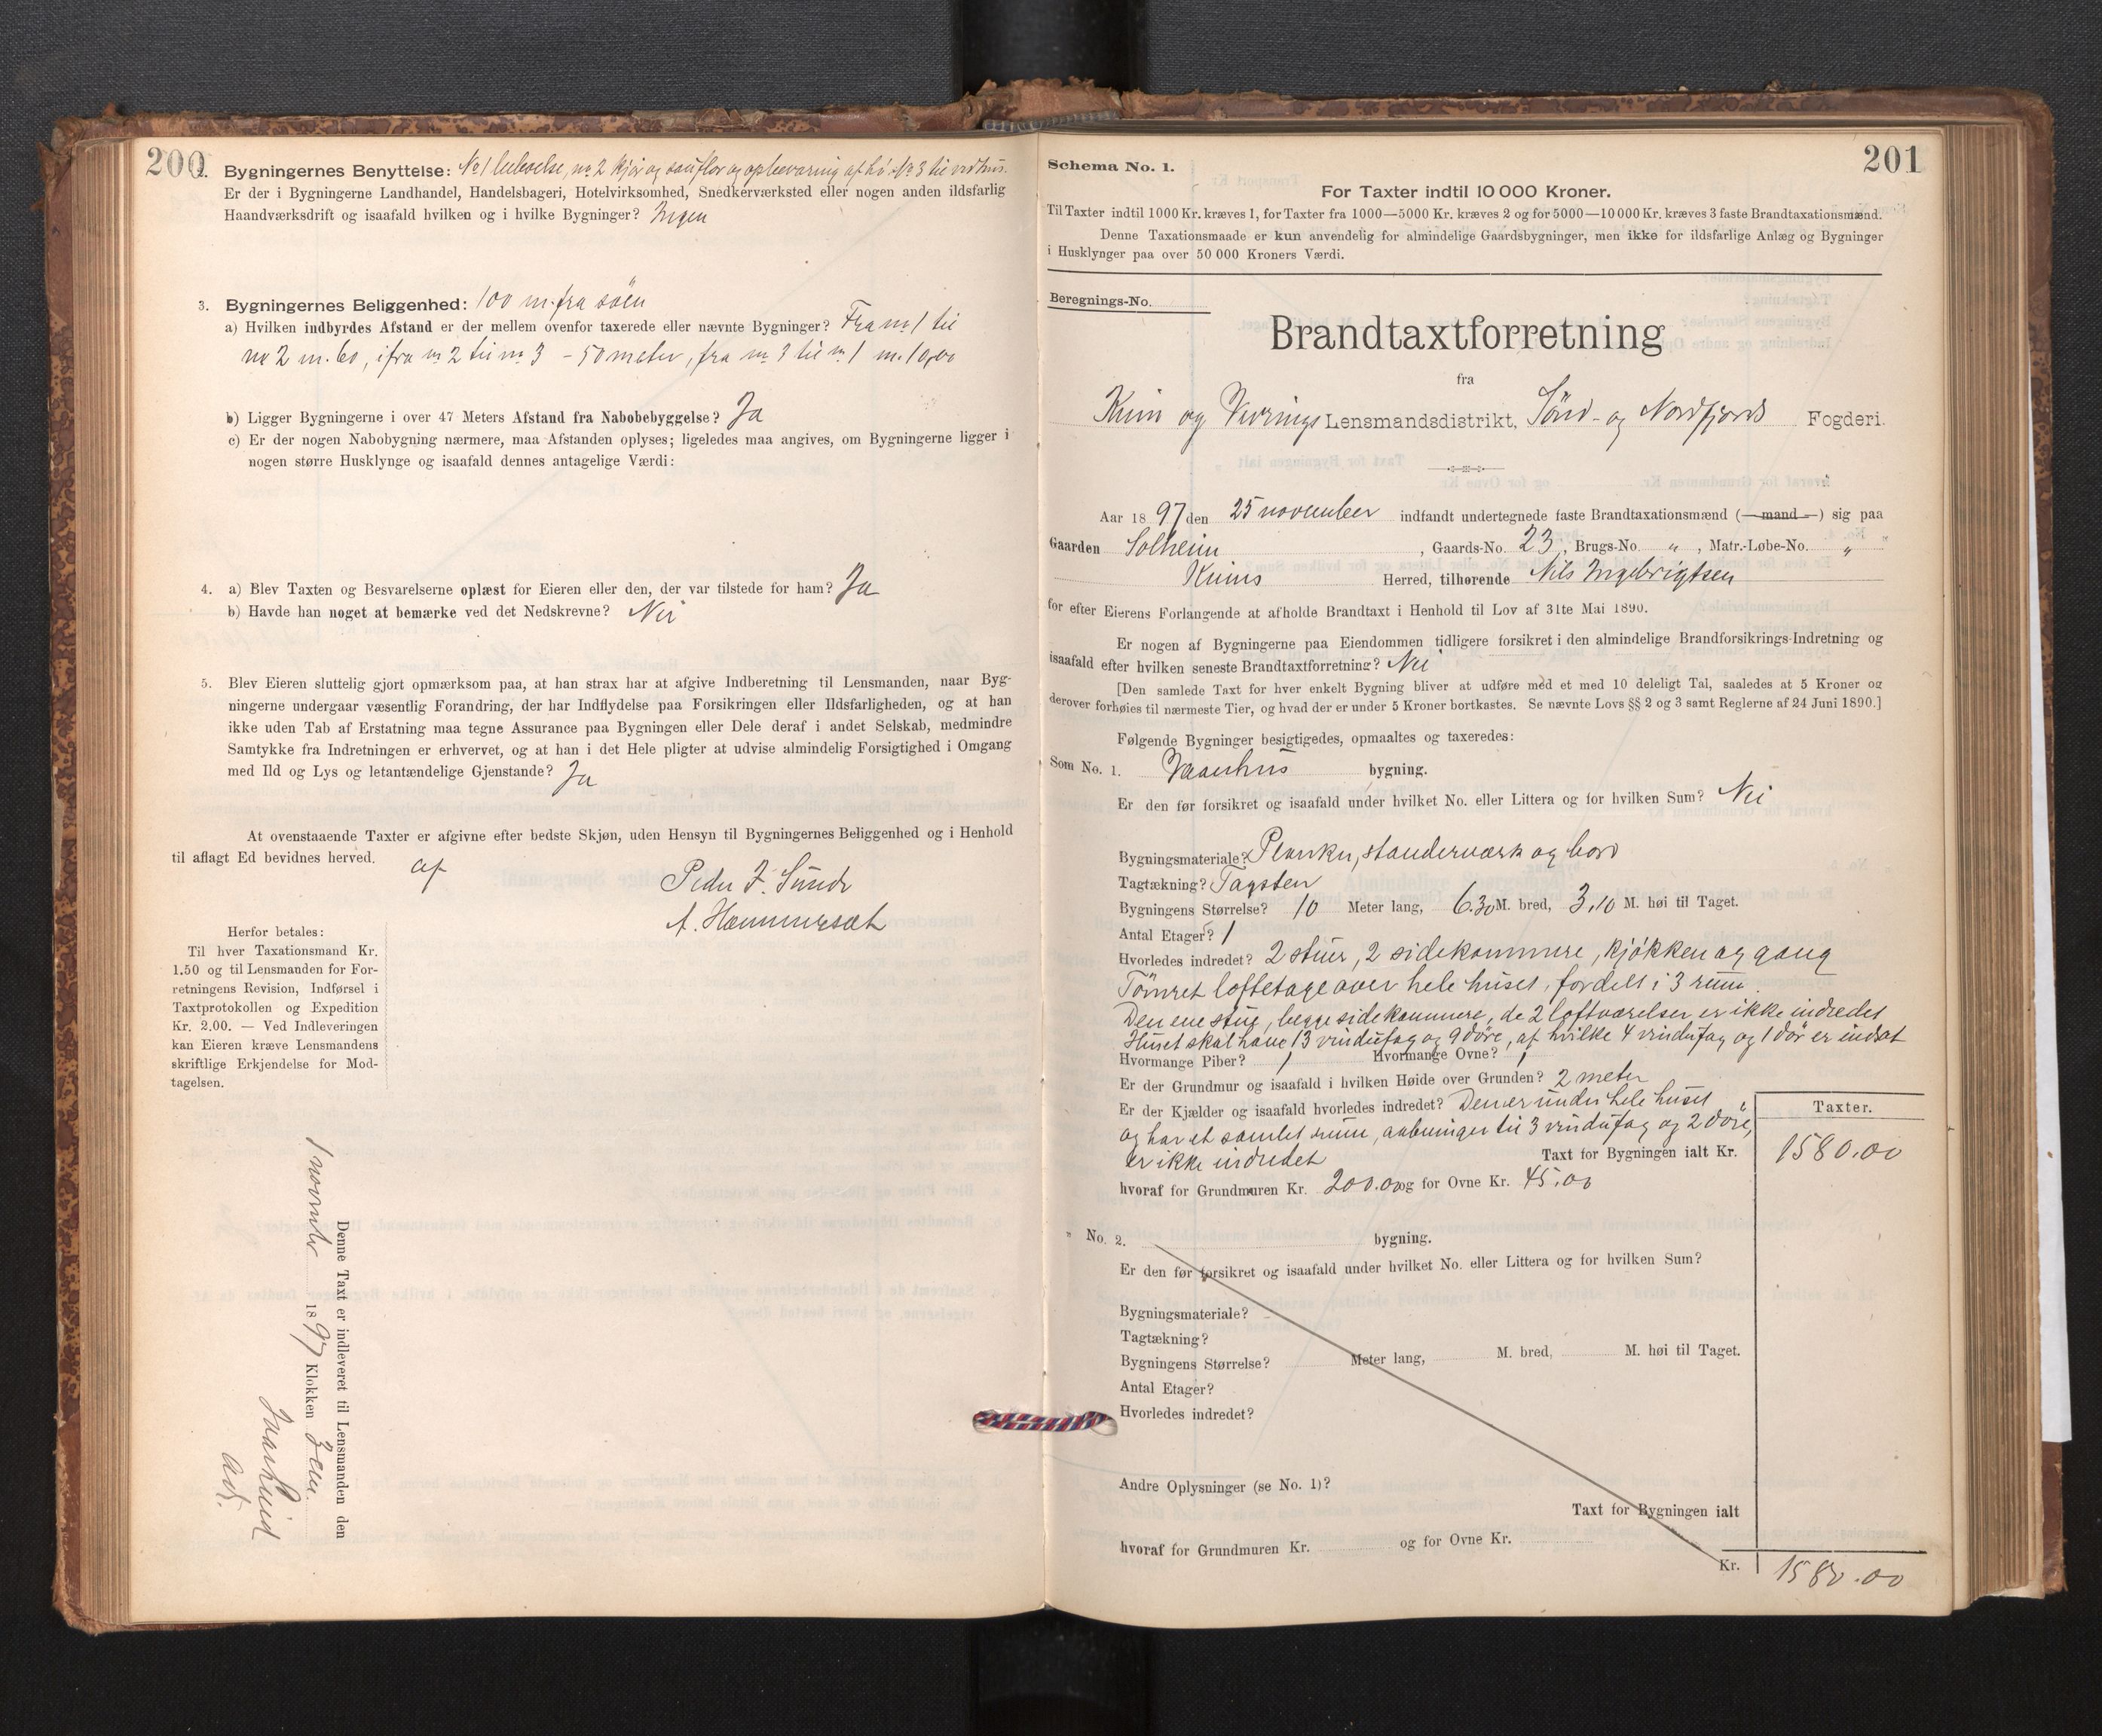 200
2. Bygningernes Benyttelse: No 1 beboelse, no 2 kjør og sauflor og opbevaring af hö. No 3 til vedhus.
Er der i Bygningerne Landhandel, Handelsbageri, Hotelvirksomhed, Snedkerværksted eller nogen anden ildsfarlig
Haandværksdrift og isaafald hvilken og i hvilke Bygninger? Ingen
3. Bygningernes Beliggenhed: 100 m. fra söen
a) Hvilken indbyrdes Afstand er der mellem ovenfor taxerede eller nævnte Bygninger? Fra no 1 til
no 2 m. 60, ifra no 2 til no 3 - 50 meter, fra no 3 til no 1 m. 10,00
b) Ligger Bygningerne i over 47 Meters Afstand fra Nabobebyggelse? Ja
c) Er der nogen Nabobygning nærmere, maa Afstanden oplyses; ligeledes maa angives, om Bygningerne ligger i
nogen større Husklynge og isaafald dennes antagelige Værdi:
4. a) Blev Taxten og Besvarelserne oplæst for Eieren eller den, der var tilstede for ham? Ja
b) Havde han noget at bemærke ved det Nedskrevne? Nei
5. Blev Eieren sluttelig gjort opmærksom paa, at han strax har at afgive Indberetning til Lensmanden, naar Byg-
ningerne undergaar væsentlig Forandring, der har Indflydelse paa Forsikringen eller Ildsfarligheden, og at han
ikke uden Tab af Erstatning maa tegne Assurance paa Bygningen eller Dele deraf i andet Selskab, medmindre
Samtykke fra Indretningen er erhvervet, og at han i det Hele pligter at udvise almindelig Forsigtighed i Omgang
med Ild og Lys og letantændelige Gjenstande? Ja
At ovenstaaende Taxter er afgivne efter bedste Skjøn, uden Hensyn til Bygningernes Beliggenhed og i Henhold
til aflagt Ed bevidnes herved.
af Peder J. Sunde
A. Hammersæt
Herfor betales:
Til hver Taxationsmand Kr.
1.50 og til Lensmanden for For-
retningens Revision, Indførsel i
Taxtprotokollen og Expedition
Kr. 2.00. — Ved Indleveringen
kan Eieren kræve Lensmandens
skriftlige Erkjendelse for Mod-
tagelsen.
Denne Taxt er indleveret til Lensmanden den
1 novembr 1897 Klokken 3 em.
201
Schema No. 1.
For Taxter indtil 10 000 Kroner.
Til Taxter indtil 1000 Kr. kræves 1, for Taxter fra 1000—5000 Kr. kræves 2 og for 5000—10 000 Kr. kræves 3 faste Brandtaxationsmænd.
Denne Taxationsmaade er kun anvendelig for almindelige Gaardsbygninger, men ikke for ildsfarlige Anlæg og Bygninger
i Husklynger paa over 50 000 Kroners Værdi.
Beregnings-No.
Brandtaxtforretning
fra
Kinn og Vevrings Lensmandsdistrikt, Sönd- og Nordfjords Fogderi.
Aar 1897 den 25 november indfandt undertegnede faste Brandtaxationsmænd (—mand—) sig paa
Gaarden Solheim, Gaards-No. 23, Brugs-No. „ , Matr.-Løbe-No. „
Kinns Herred, tilhørende Nils Ingebrigtsen
for efter Eierens Forlangende at afholde Brandtaxt i Henhold til Lov af 31te Mai 1890.
Er nogen af Bygningerne paa Eiendommen tidligere forsikret i den almindelige Brandforsikrings-Indretning og
isaafald efter hvilken seneste Brandtaxtforretning? Nei
[Den samlede Taxt for hver enkelt Bygning bliver at udføre med et med 10 deleligt Tal, saaledes at 5 Kroner og
derover forhøies til nærmeste Tier, og hvad der er under 5 Kroner bortkastes. Se nævnte Lovs §§ 2 og 3 samt Reglerne af 24 Juni 1890.]
Følgende Bygninger besigtigedes, opmaaltes og taxeredes:
Som No. 1. Vaanhus bygning.
Er den før forsikret og isaafald under hvilket No. eller Littera og for hvilken Sum? Nei
Bygningsmateriale? Planker, standerværk og bord
Tagtækning? Tagsten
Bygningens Størrelse? 10 Meter lang, 6.30 M. bred, 3,10 M. høi til Taget.
Antal Etager? 1
Hvorledes indredet? 2 stuer, 2 sidekammere, kjökken og gang
Tömret loftetage over hele huset, fordelt i 3 rum.
Den ene stue, begge sidekammere, de 2 loftværelser er ikke indredet
Huset skal have 13 vindufag og 9 döre, af hvilke 4 vindufag og 1 dör er indsat
Hvormange Piber? 1 Hvormange Ovne? 1
Er der Grundmur og isaafald i hvilken Høide over Grunden? 2 meter
Er der Kjælder og isaafald hvorledes indredet? Den er under hele huset
og har et samlet rum, aabninger til 3 vindufag og 2 döre,
er ikke indredet
Taxter.
Taxt for Bygningen ialt Kr. 1580.00
hvoraf for Grundmuren Kr. 200.00 og for Ovne Kr. 45.00
" No. 2. bygning.
Er den før forsikret og isaafald under hvilket No. eller Littera og for hvilken Sum?
Bygningsmateriale?
Tagtækning?
Bygningens Størrelse? Meter lang, M. bred, M. høi til Taget.
Antal Etager?
Hvorledes indredet?
Andre Oplysninger (se No. 1)?
Taxt for Bygningen ialt
hvoraf for Grundmuren Kr. og for Ovne Kr.
Kr. 1580.00